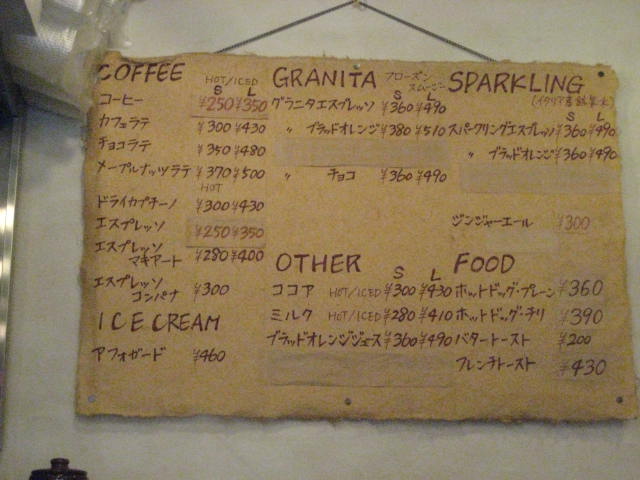 COFFEE
HOT/ICED
S L
コーヒー ¥250 ¥350
カフェラテ ¥300 ¥430
チョコラテ ¥350 ¥480
メープルナッツラテ ¥370 ¥500
HOT
ドライカプチーノ ¥300 ¥430
エスプレッソ ¥250 ¥350
エスプレッソ
マキアート ¥280 ¥400
エスプレッソ
コンパナ ¥300
ICE CREAM
アフォガード ¥460
GRANITA フローズン
スムージー
S L
グラニタエスプレッソ ¥360 ¥490
〃 ブラッドオレンジ ¥380 ¥510
〃 チョコ ¥360 ¥490
OTHER
S L
ココア HOT/ICED ¥300 ¥430
ミルク HOT/ICED ¥280 ¥410
ブラッドオレンジジュース ¥360 ¥490
SPARKLING
(イタリア産
S L
スパークリングエスプレッソ ¥360 ¥490
〃 ブラッドオレンジ ¥360 ¥490
ジンジャーエール ¥300
FOOD
ホットドッグ・プレーン ¥360
ホットドッグ・チリ ¥390
バタートースト ¥200
フレンチトースト ¥430